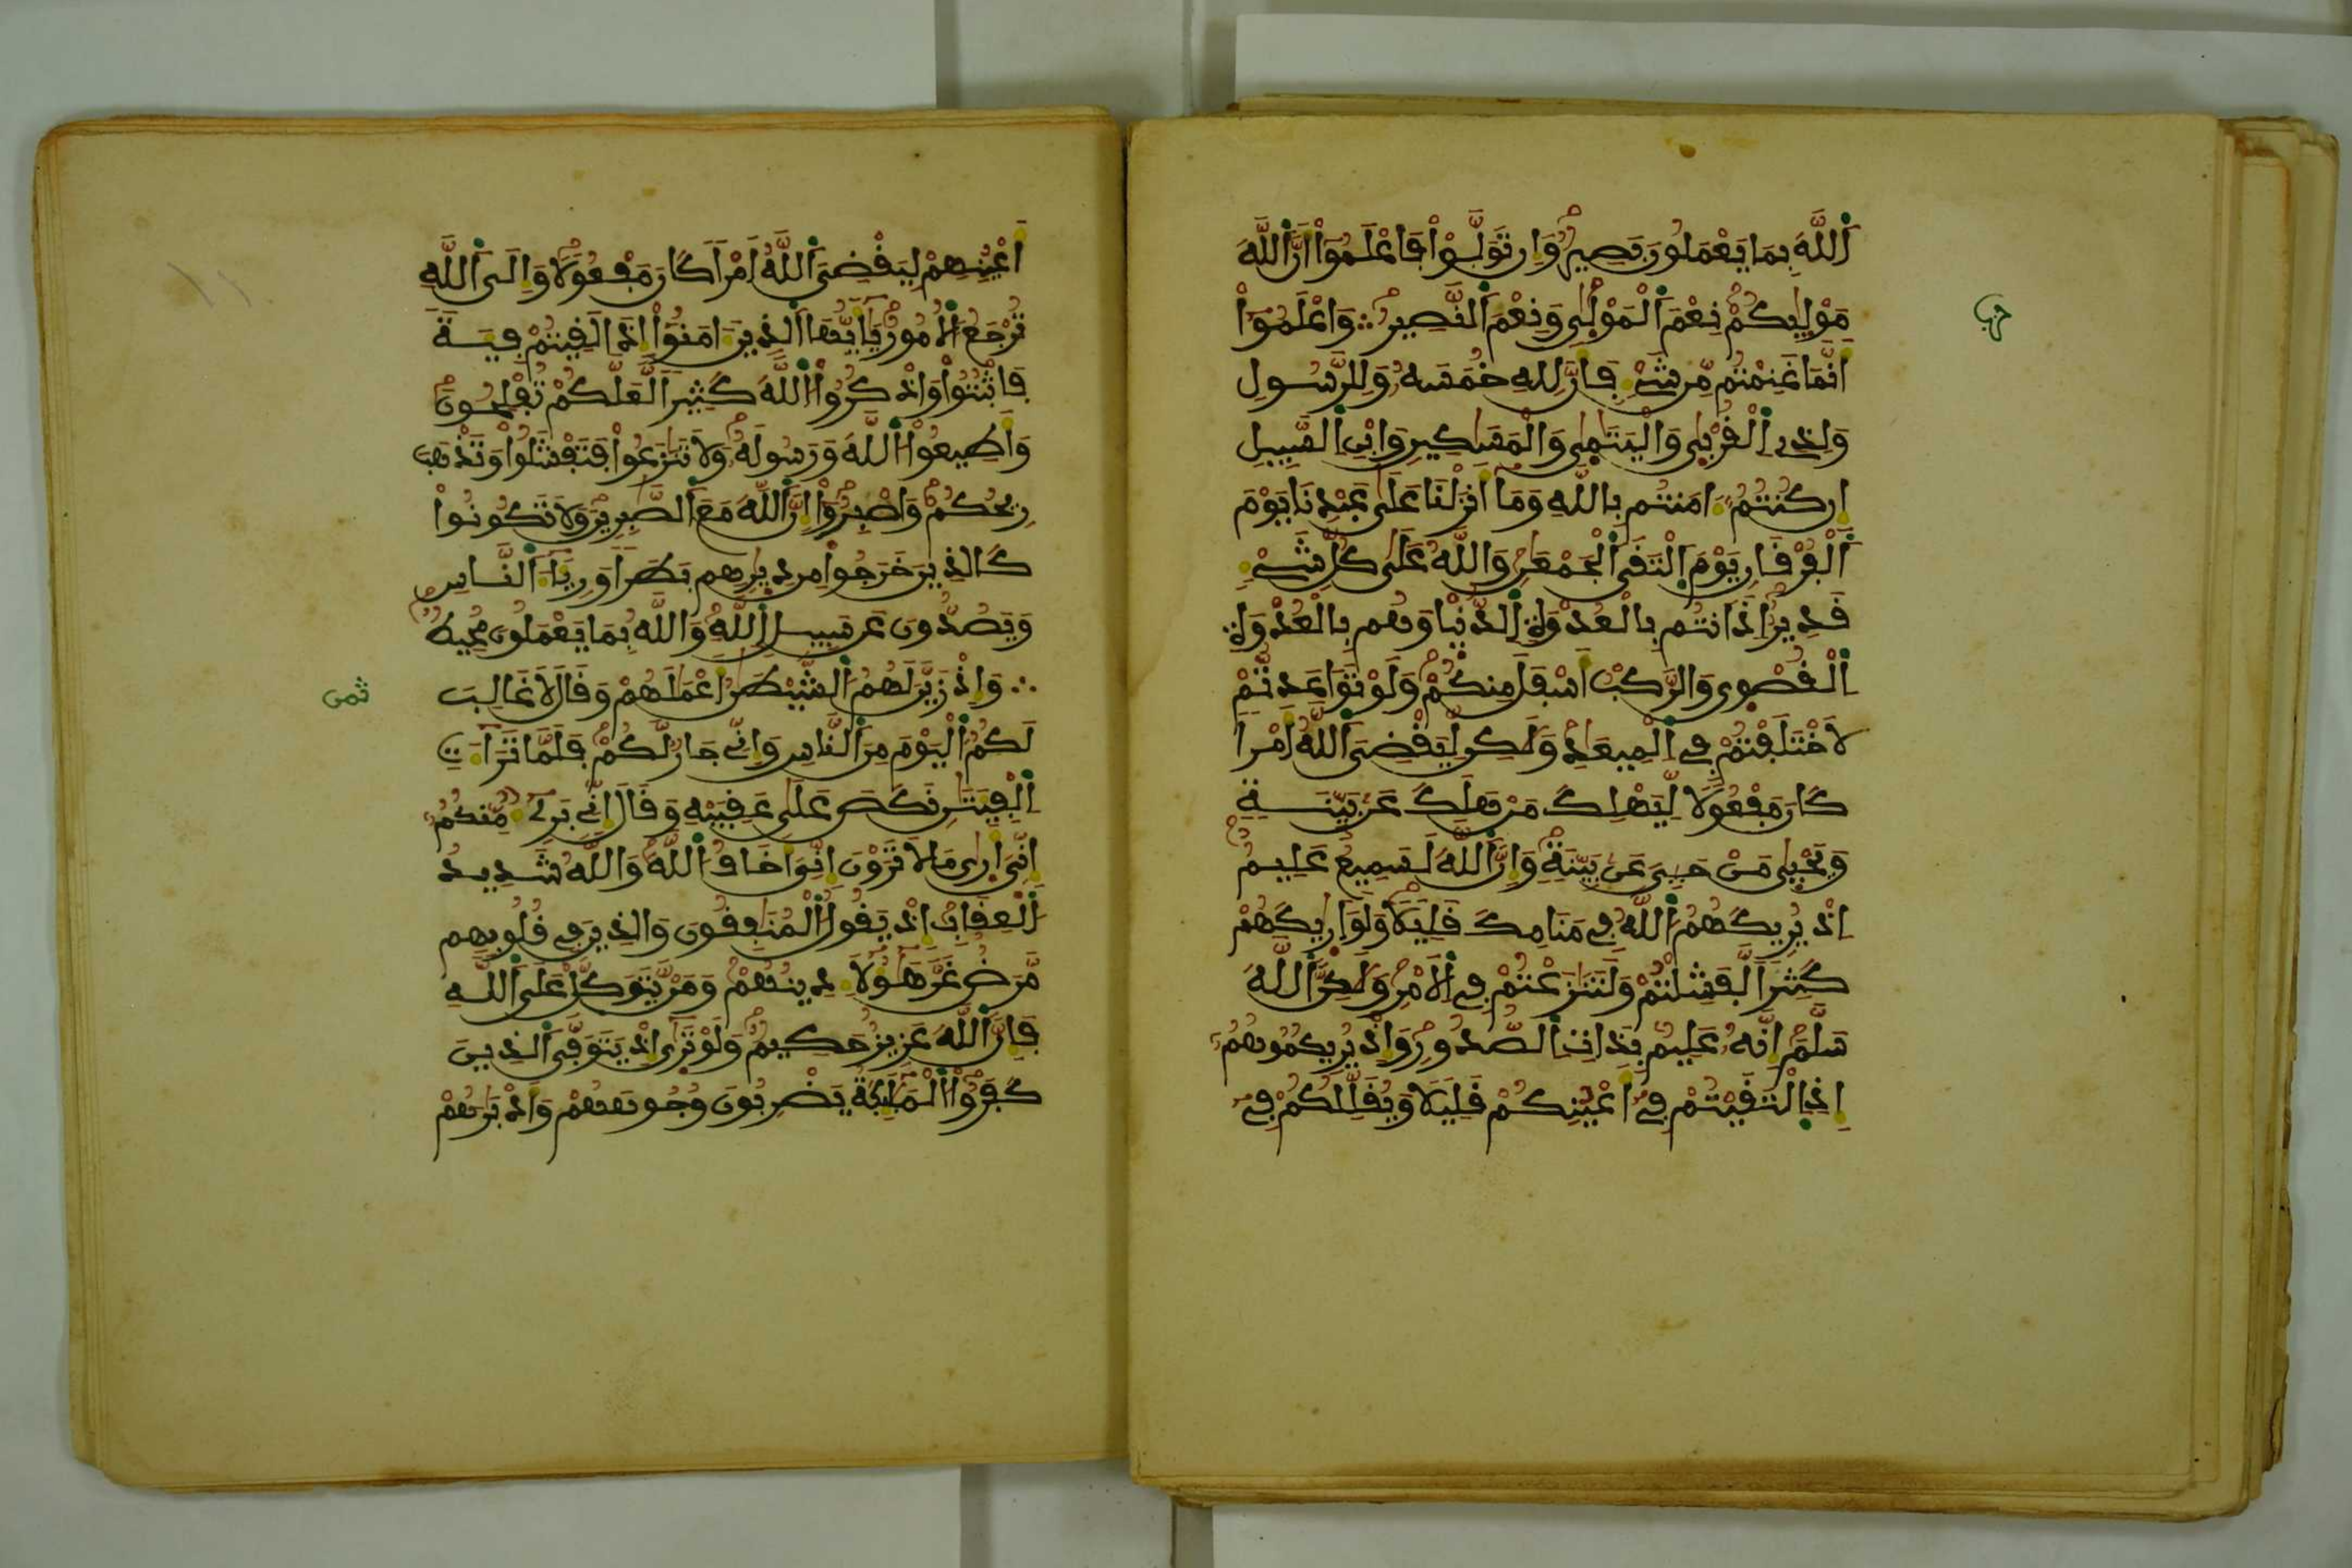 اَللَّهَ بِمَا يَعْمَلُونَ بَصِيرٌ وَإِن تَوَلَّوْاْ فَاعْلَمُوٓاْ أَنَّ اَللَّهَ
مَوْلِيٰكُمْ نِعْمَ اَلْمَوْلٰي وَنِعْمَ اَلنَّصِيرُ ∴ وَاعْلَمُوٓاْ
حزب
أَنَّمَا غَنِمْتُم مِّن شَےْءٖ فَأَنَّ لِلهِ خُمُسَهُۥ وَلِلرَّسُولِ
وَلِذِے اِلْقُرْبٰي وَالْيَتَٰمٰي وَالْمَسَٰكِينِ وَابْنِ اِلسَّبِيلِ
إِن كُنتُمُۥٓ ءَامَنتُم بِاللَّهِ وَمَآ أَنزَلْنَا عَلَىٰ عَبْدِنَا يَوْمَ
اَلْفُرْقَانِ يَوْمَ اَلْتَقَى اَلْجَمْعَٰنِ وَاللَّهُ عَلَىٰ كُلِّ شَےْءٖ
قَدِيرٌ إِذَ اَنتُم بِالْعُدْوَةِ اِلدُّنْيٰا وَهُم بِالْعُدْوَةِ
اِلْقُصْوٰى وَالرَّكْبُ أَسْفَلَ مِنكُمْ وَلَوْ تَوَاعَدتُّمْ
لَاخْتَلَفْتُمْ فِے اِلْمِيعَٰدِ وَلَٰكِن لِّيَقْضِيَ اَللَّهُ أَمْراٗ
كَانَ مَفْعُولاٗ لِّيَهْلِكَ مَنْ هَلَكَ عَنۢ بَيِّنَةٖ
وَيَحْيٰي مَنْ حَيِيَ عَنۢ بَيِّنَةٖ وَإِنَّ اَللَّهَ لَسَمِيعٌ عَلِيمٌ
إِذْ يُرِيكَهُمُ اُللَّهُ فِے مَنَامِكَ قَلِيلاٗ وَلَوَ اَرٰيكَهُمْ
كَثِيراٗ لَّفَشِلْتُمْ وَلَتَنَٰزَعْتُمْ فِے اِلَامْرِ وَلَٰكِنَّ اَللَّهَ
سَلَّمَ إِنَّهُۥ عَلِيمٌۢ بِذَاتِ اِلصُّدُورِ وَإِذْ يُرِيكُمُوهُمُۥٓ
إِذِ اِلْتَقَيْتُمْ فِےٓ أَعْيُنِكُمْ قَلِيلاٗ وَيُقَلِّلُكُمْ فِےٓ
أَعْيُنِهِمْ لِيَقْضِيَ اَللَّهُ أَمْراٗ كَانَ مَفْعُولاٗ وَإِلَى اَللَّهِ
تُرْجَعُ اُلُامُورُ يَٰٓأَيُّهَا اَلذِينَ ءَامَنُوٓاْ إِذَا لَقِيتُمْ فِيَةٗ
فَاثْبُتُواْ وَاذْكُرُواْ اُللَّهَ كَثِيراٗ لَّعَلَّكُمْ تُفْلِحُونَ
وَأَطِيعُواْ اُللَّهَ وَرَسُولَهُۥ وَلَا تَنَٰزَعُواْ فَتَفْشَلُواْ وَتَذْهَبَ
رِيحُكُمْ وَاصْبِرُوٓاْ إِنَّ اَللَّهَ مَعَ اَلصَّٰبِرِينَ وَلَا تَكُونُواْ
كَالذِينَ خَرَجُواْ مِن دِيٰرِهِم بَطَراٗ وَرِيَآءَ اَلنَّاسِ
وَيَصُدُّونَ عَن سَبِيلِ اِللَّهِ وَاللَّهُ بِمَا يَعْمَلُونَ مُحِيطٌ
∴ وَإِذْ زَيَّنَ لَهُمُ اُلشَّيْطَٰنُ أَعْمَٰلَهُمْ وَقَالَ لَا غَالِبَ
ثمن
لَكُمُ اُلْيَوْمَ مِنَ اَلنَّاسِ وَإِنِّے جَارٌ لَّكُمْ فَلَمَّا تَرَآءَتِ
اِلْفِيَتَٰنِ نَكَصَ عَلَىٰ عَقِبَيْهِ وَقَالَ إِنِّے بَرِےٓءٌ مِّنكُمُۥٓ
إِنِّيَ أَرٰى مَا لَا تَرَوْنَ إِنِّيَ أَخَافُ اُللَّهَ وَاللَّهُ شَدِيدُ
اُلْعِقَابِ إِذْ يَقُولُ اُلْمُنَٰفِقُونَ وَالذِينَ فِے قُلُوبِهِم
مَّرَضٌ غَرَّ هَٰٓؤُلَآءِ دِينُهُمْ وَمَنْ يَّتَوَكَّلْ عَلَى اَللَّهِ
فَإِنَّ اَللَّهَ عَزِيزٌ حَكِيمٌ وَلَوْ تَرٰىٓ إِذْ يَتَوَفَّى اَلذِينَ
كَفَرُواْ اُلْمَلَٰٓئِكَةُ يَضْرِبُونَ وُجُوهَهُمْ وَأَدْبَٰرَهُمْ